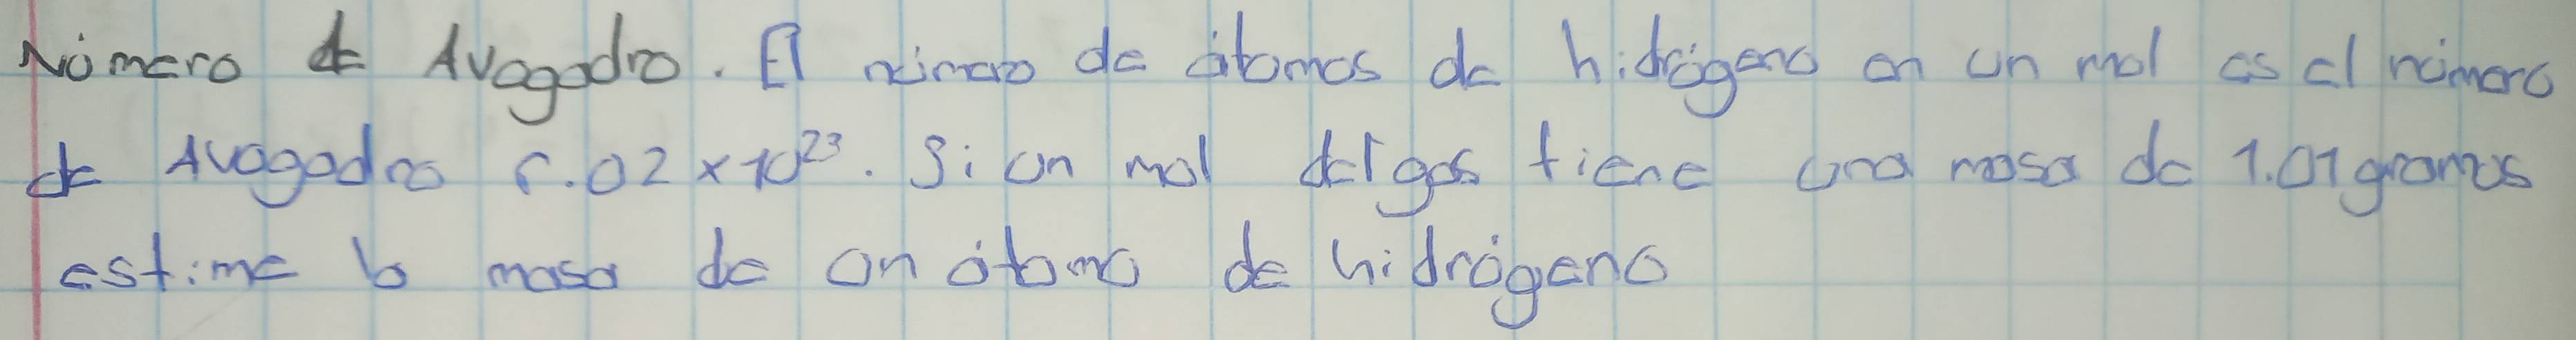 Número de Avogadro. El número de átomos de hidrógeno en un mol es el número
de Avogadro 6.02 x 10²³. Si un mol del gas tiene una masa de 1.01 gramos
estime la masa de un átomo de hidrógeno